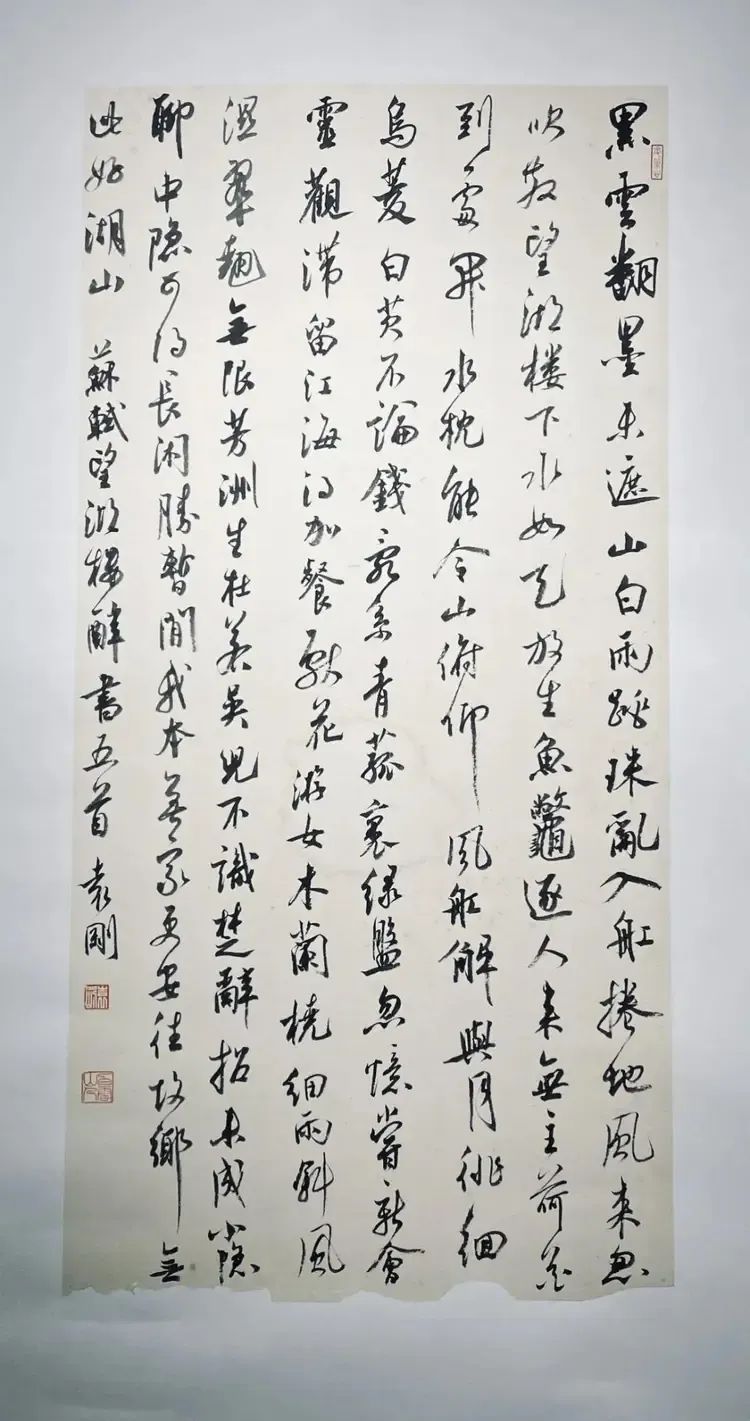 黑雲翻墨未遮山白雨跳珠亂入船捲地風来忽
吹散望湖楼下水如天放生魚鼈逐人来無主荷花
到處開水枕能令山俯仰風船解與月徘徊
烏菱白芡不論錢亂系青菰裹绿盤忽憶嘗新會
靈觀滞留江海得加餐献花游女木蘭橈细雨斜風
濕翠翹無限芳洲生杜若吳兒不識楚辭招未成小隱
聊中隐可得長闲勝暫閒我本無家更安往故鄉無
此好湖山 蘇軾望湖楼醉書五首 袁剛